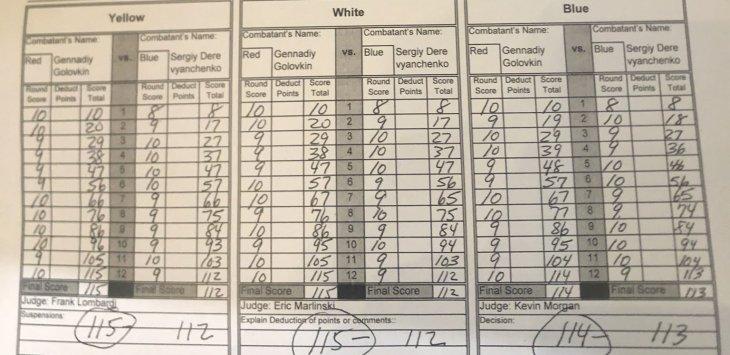 Yellow
Combatant's Name: Combatant's Name:
Red Gennadiy vs. Blue Sergiy Dere
Golovkin vyanchenko
Round Deduct Score Round Deduct Score
Score Points Total Score Points Total
10 10 1 8 8
10 20 2 9 17
9 29 3 10 27
9 38 4 10 37
9 47 5 10 47
9 56 6 10 57
10 66 7 9 66
10 76 8 9 75
10 86 9 9 84
10 96 10 9 93
9 105 11 10 103
10 115 12 9 112
Final Score 115 Final Score 112
Judge: Frank Lombardi
Suspensions:
115 112
White
Combatant's Name: Combatant's Name:
Red Gennadiy vs. Blue Sergiy Dere
Golovkin vyanchenko
Round Deduct Score Round Deduct Score
Score Points Total Score Points Total
10 10 1 8 8
10 20 2 9 17
9 29 3 10 27
9 38 4 10 37
9 47 5 10 47
10 57 6 9 56
10 67 7 9 65
9 76 8 10 75
10 86 9 9 84
9 95 10 10 94
10 105 11 9 103
10 115 12 9 112
Final Score 115 Final Score 112
Judge: Eric Marlinski
Explain Deduction of points or comments:
115 - 112
Blue
Combatant's Name: Combatant's Name:
Red Gennadiy vs. Blue Sergiy Dere
Golovkin vyanchenko
Round Deduct Score Round Deduct Score
Score Points Total Score Points Total
10 10 1 8 8
9 19 2 10 18
10 29 3 9 27
10 39 4 9 36
9 48 5 10 46
9 57 6 10 56
10 67 7 9 65
10 77 8 9 74
9 86 9 10 84
9 95 10 10 94
9 104 11 10 104
10 114 12 9 113
Final Score 114 Final Score 113
Judge: Kevin Morgan
Decision:
114 - 113